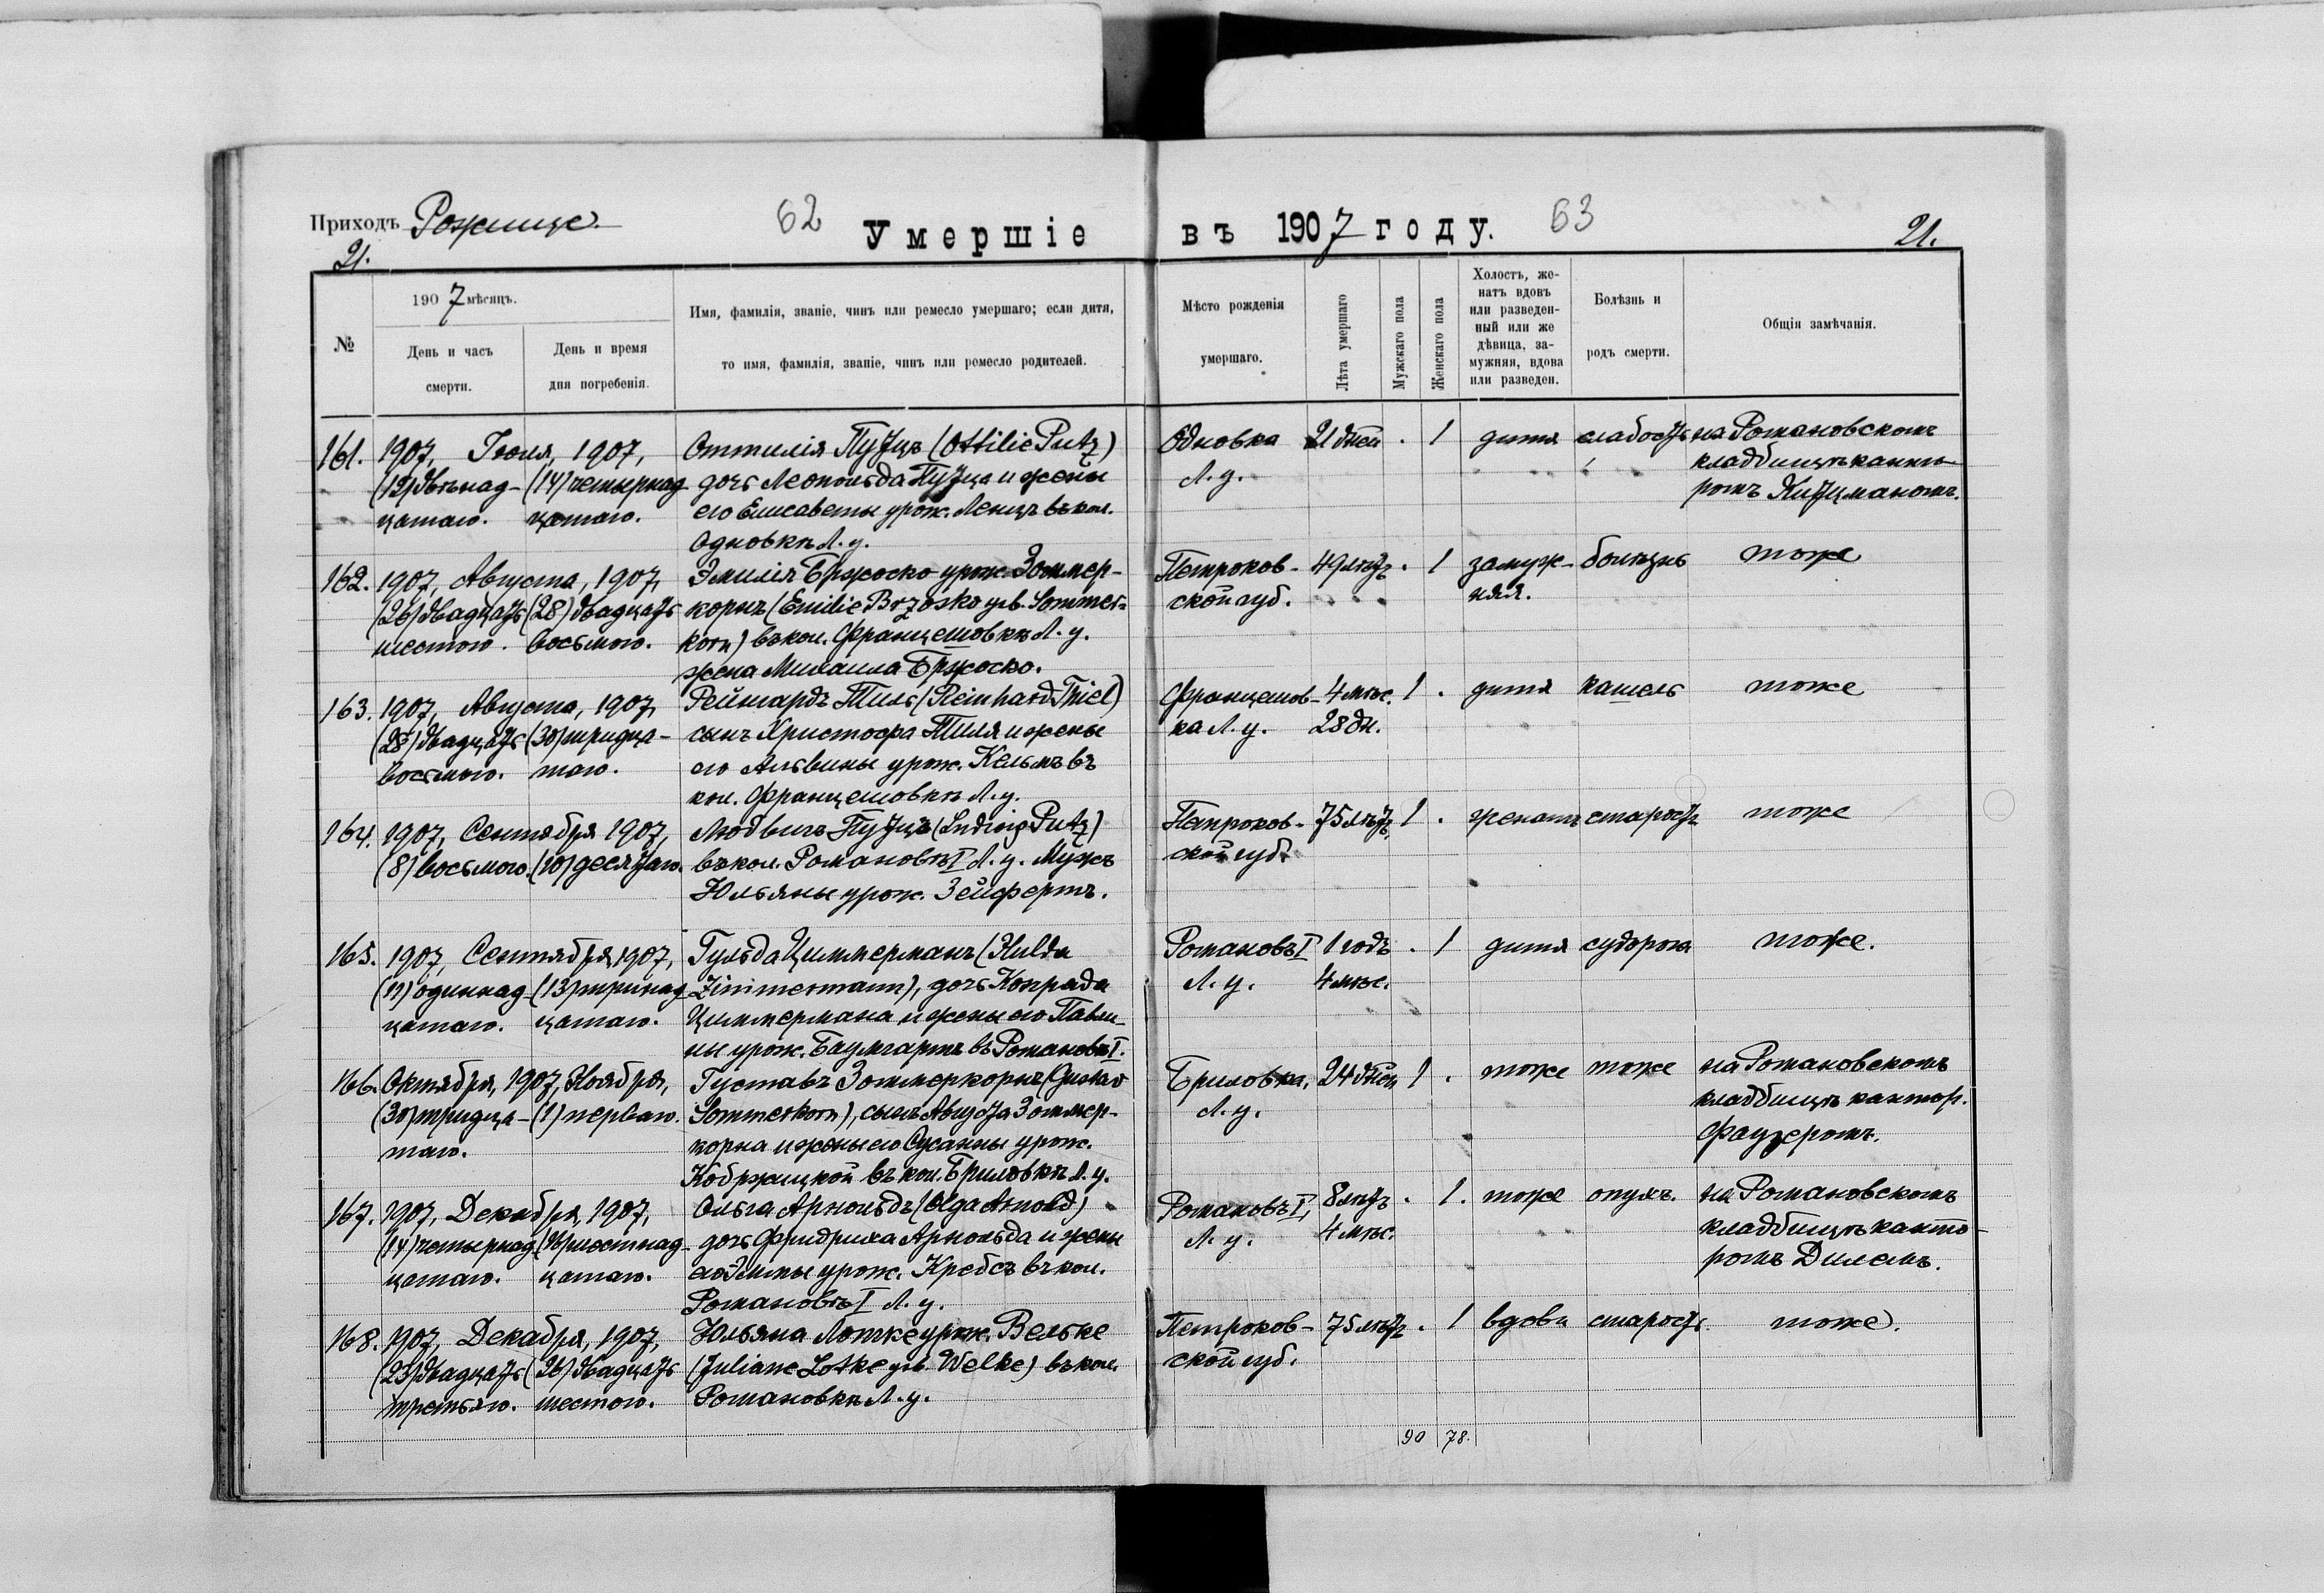 Приходъ Рожище.
62
Умершіе
въ 1907 году.
63
21.
21.
№
1907 мѣсяцъ.
День и часъ смерти.
День и время дня погребенія.
Имя, фамилія, званіе, чинъ или ремесло умершаго; если дитя,
то имя, фамилія, званіе, чинъ или ремесло родителей.
Мѣсто рожденія
умершаго.
Лѣта умершаго
Мужскаго пола
Женскаго пола
Холостъ, же-
натъ вдовъ
или разведен-
ный или же
дѣвица, за-
мужняя, вдова
или разведен.
Болѣзнь и
родъ смерти.
Общія замѣчанія.
161. 1907, Іюля, 1907, Оттилія Путцъ (Ottilie Putz) Одновка 21 дней . 1 дитя слабость на Романовскомъ
(12) двѣнад- (14) четырнад- дочь Леопольда Путца и жены Л. у. кладбищѣ канто-
цатаго. цатаго. его Елисаветы урож. Ленцъ въ кол. ромъ Китцманомъ.
Одновкѣ Л. у.
162. 1907, Августа, 1907, Эмилія Бржоско урож. Зоммер- Петроков- 49 лѣтъ . 1 замуж- болѣзнь тоже
(26) двадцать (28) двадцать корнъ (Emilie Brzosko geb. Sommer- ской губ. няя.
шестого. восьмого. korn) въ кол. Францешовкѣ Л. у.
жена Михаила Бржоско.
163. 1907, Августа, 1907, Рейнгардъ Тиль (Reinhard Thiel) Францешов- 4 мѣс. 1 . дитя кашель тоже
(28) двадцать (30) тридца- сынъ Христофа Тиля и жены ка Л. у. 28 дн.
восьмого. таго. его Альвины урож. Кельмъ въ
кол. Францешовкѣ Л. у.
164. 1907, Сентября 1907, Людвигъ Путцъ (Ludwig Putz) Петроков- 75 лѣтъ 1 . женатъ старость тоже
(8) восьмого. (10) десятаго. въ кол. Романовѣ I Л. у. Мужъ ской губ.
Юльяны урож. Зейфертъ.
165. 1907, Сентября, 1907, Гульда Циммерманъ (Hulda Романовъ I 1 годъ . 1 дитя судорога тоже.
(11) одиннад- (13) тринад- Zimmermann), дочь Конрада Л. у. 4 мѣс.
цатаго. цатаго. Циммермана и жены его Павли-
ны урож. Баумгартъ въ Романовѣ I.
166. Октября, 1907, Ноября, Густавъ Зоммеркорнъ (Gustav Бриловка, 24 дней 1 . тоже тоже на Романовскомъ
(30) тридца- (1) перваго. Sommerkorn), сынъ Августа Зоммер- Л. у. кладбищѣ кантор.
таго. корна и жены его Сусанны урож. Фаузеромъ.
Кобржицкой въ кол. Бриловкѣ Л. у.
167. 1907, Декабря, 1907, Ольга Арнольдъ (Olga Arnold) Романовъ I, 8 лѣтъ . 1. тоже опухъ. на Романовскомъ
(14) четырнад- (16) шестнад- дочь Фридриха Арнольда и жены Л. у. 4 мѣс. кладбищѣ канто-
цатаго. цатаго. его урож. Кребсъ въ кол. ромъ Дилемъ.
Романовѣ I Л. у.
168. 1907, Декабря, 1907, Юльяна Лотке урож. Вельке Петроков- 75 лѣтъ . 1 вдова старость тоже.
(23) двадцать (26) двадцать (Juliane Lotke geb. Welke) въ кол. ской губ.
третьяго. шестого. Романовкѣ Л. у.
90 78.